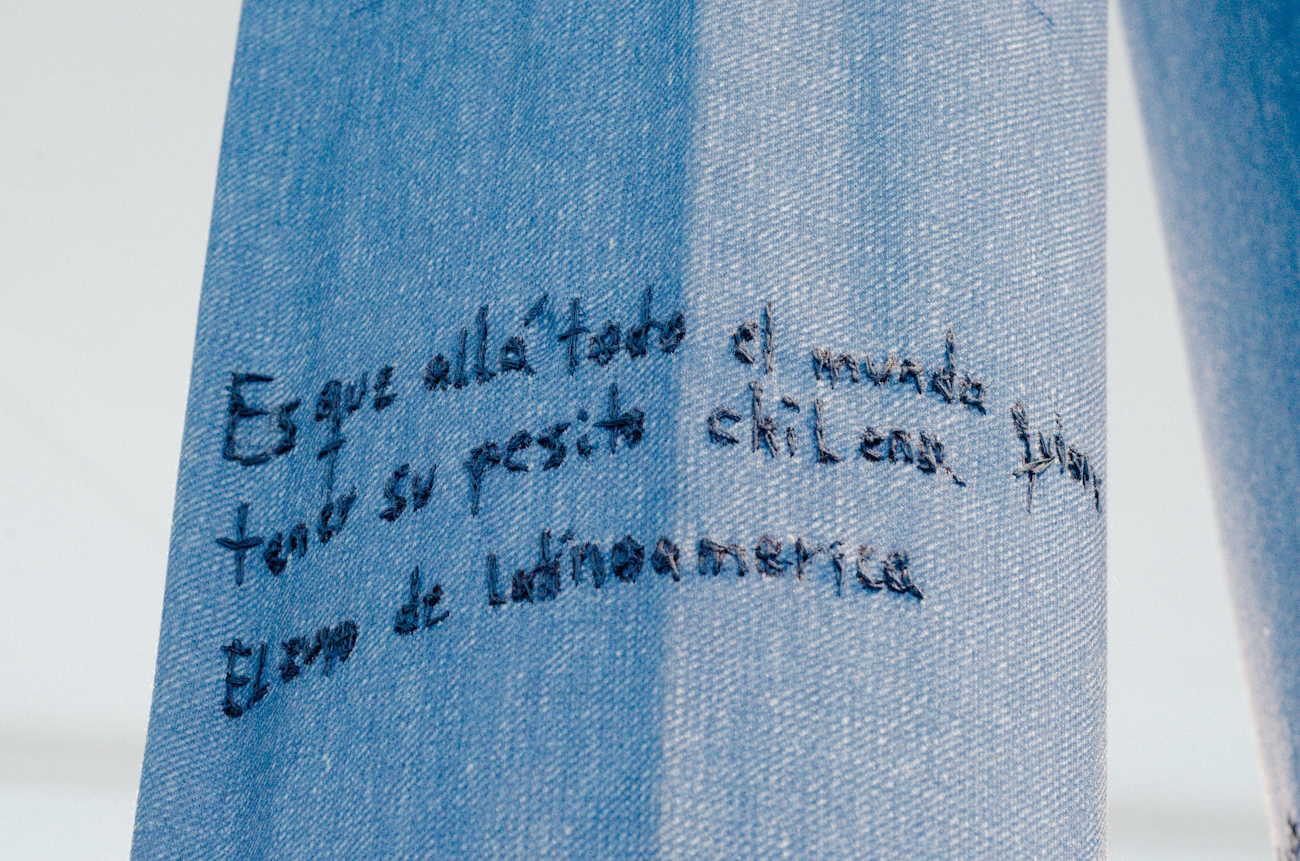 Es que allá todo el mundo
tener su pesito chileno,
El euro de latinoamerica